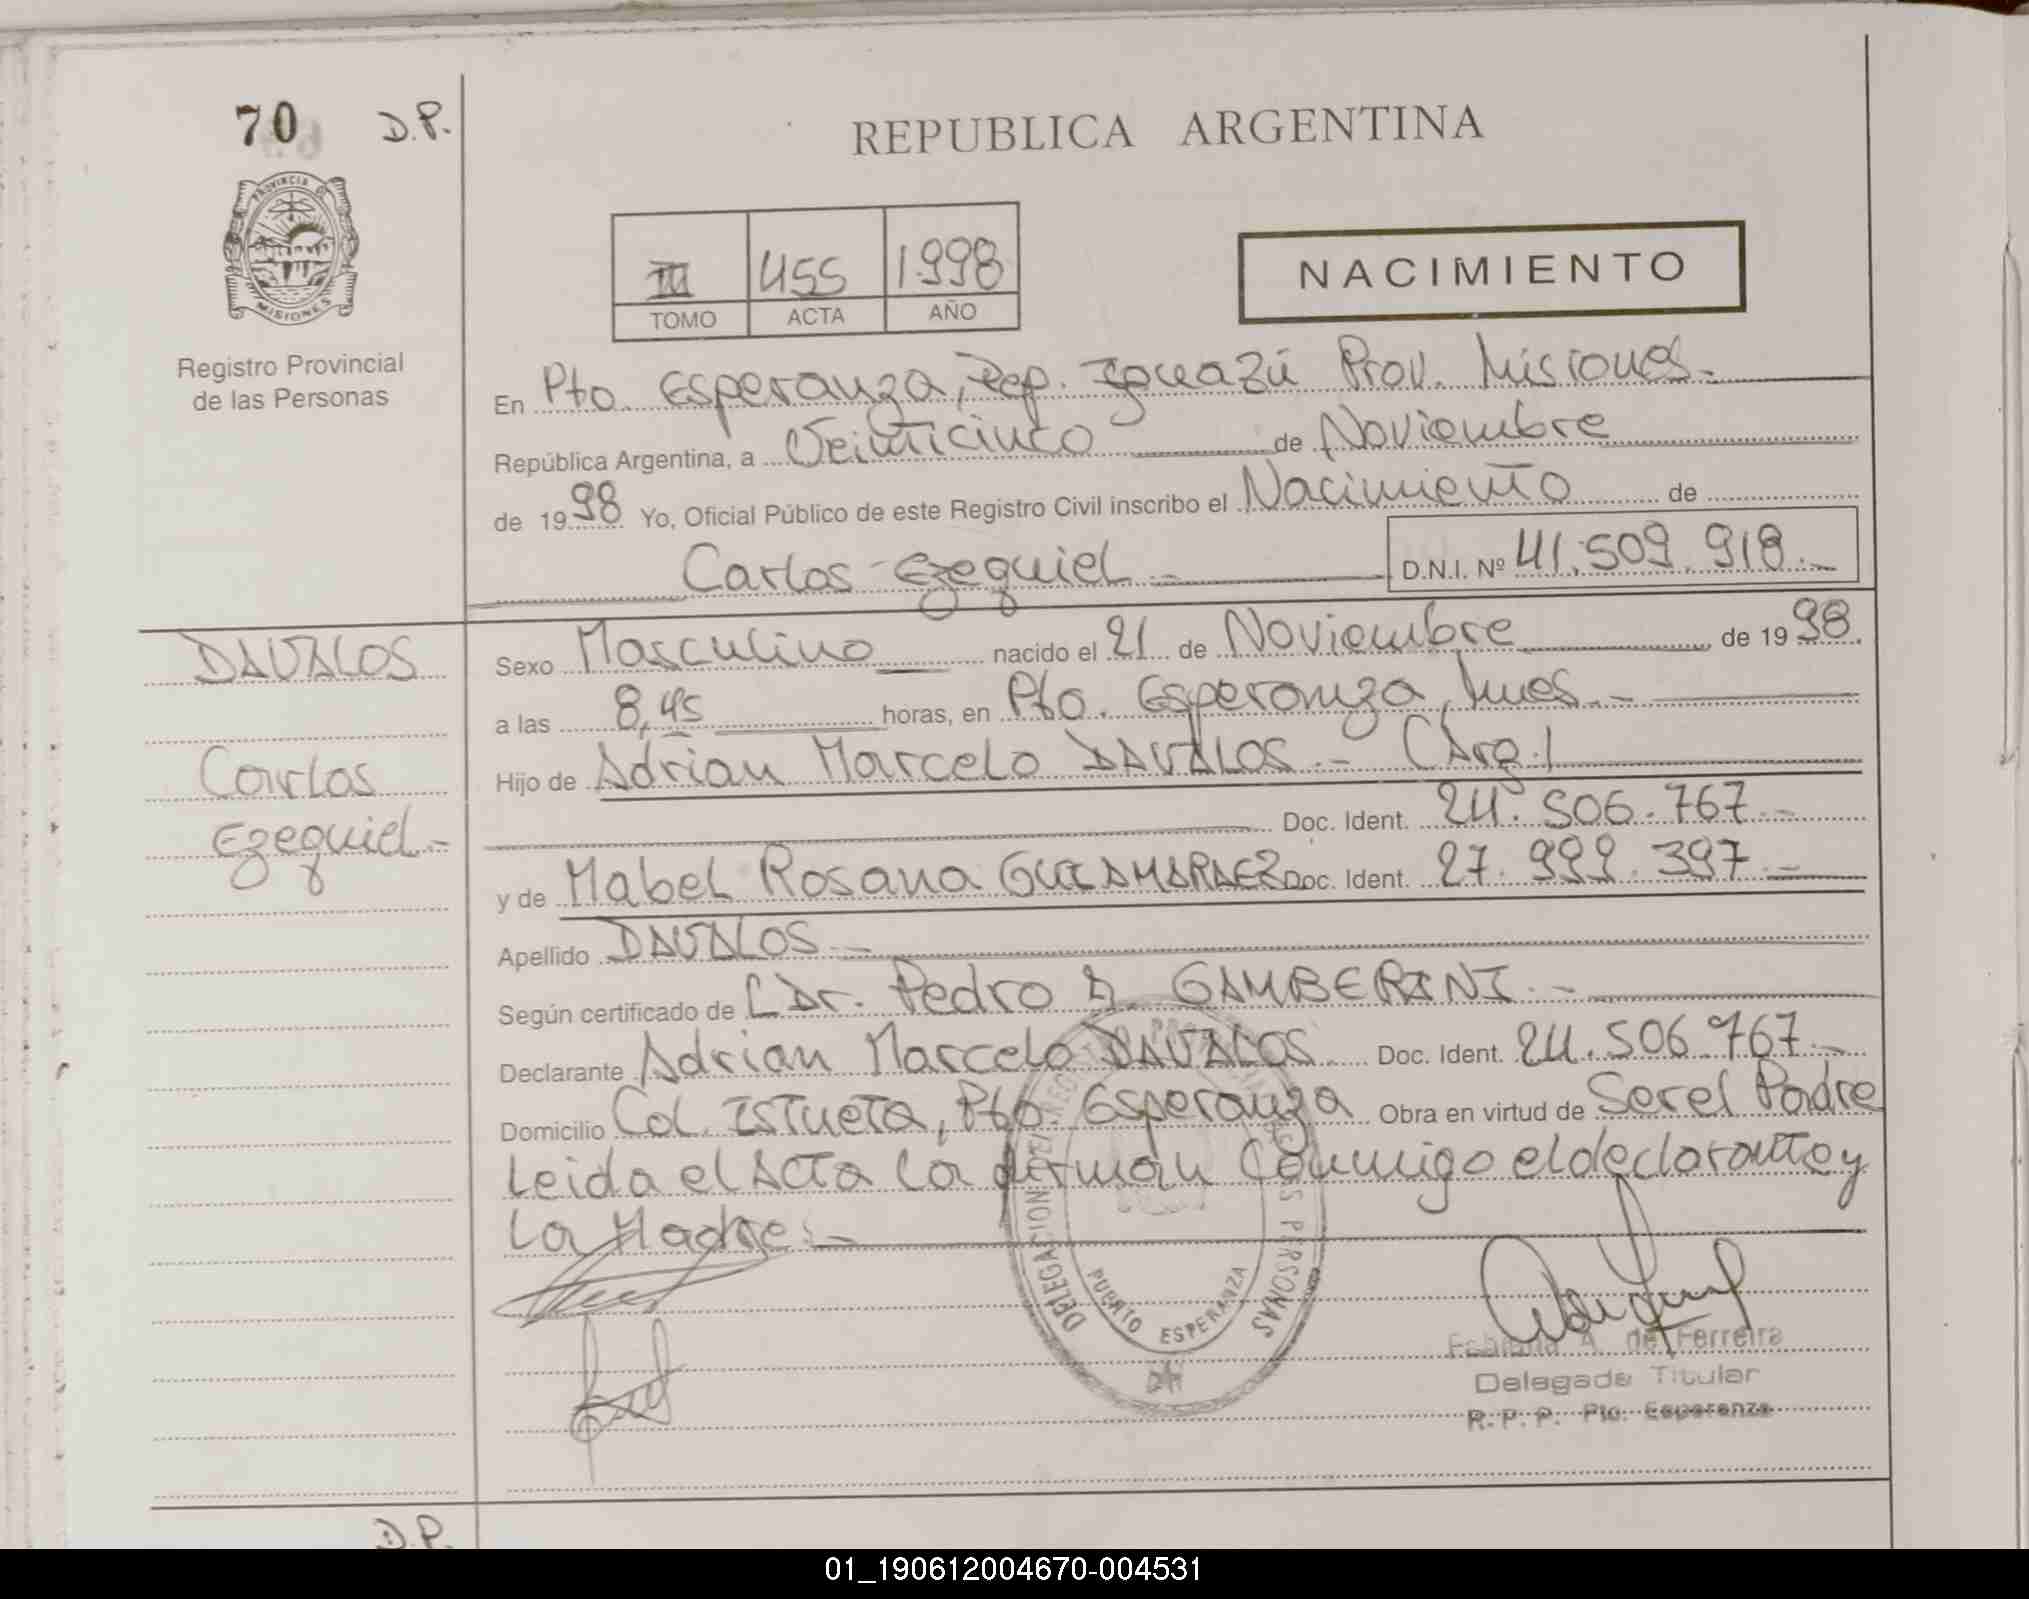 70 D.P.
REPUBLICA ARGENTINA
PROVINCIA DE MISIONES
Registro Provincial
de las Personas
III 455 1.998
TOMO ACTA AÑO
NACIMIENTO
En Pto. Esperanza, Dep. Iguazú Prov. Misiones.-
República Argentina, a Veinticinco de Noviembre
de 1998 Yo, Oficial Público de este Registro Civil inscribo el Nacimiento de
Carlos Ezequiel.- D.N.I. Nº 41.509.918.-
DAVALOS
Carlos
Ezequiel.-
Sexo Masculino nacido el 21 de Noviembre de 1998.
a las 8,45 horas, en Pto. Esperanza, Mnes.-
Hijo de Adrian Marcelo DAVALOS.- (Arg.)
Doc. Ident. 24.506.767.-
y de Mabel Rosana Doc. Ident. 27.999.397.-
Apellido DAVALOS.-
Según certificado de Dr. Pedro A. GAMBERINI.-
Declarante Adrian Marcelo DAVALOS Doc. Ident. 24.506.767.-
Domicilio Col. ISTUETA, Pto. Esperanza Obra en virtud de Ser el Padre
Leida el Acta la firman Conmigo el declarante y
La Madre.-
DELEGACION DEL REGISTRO DE LAS PERSONAS
PUERTO ESPERANZA
A. de Ferreira
Delegada Titular
R. P. P. Pto. Esperanza
D.P.
01_190612004670-004531